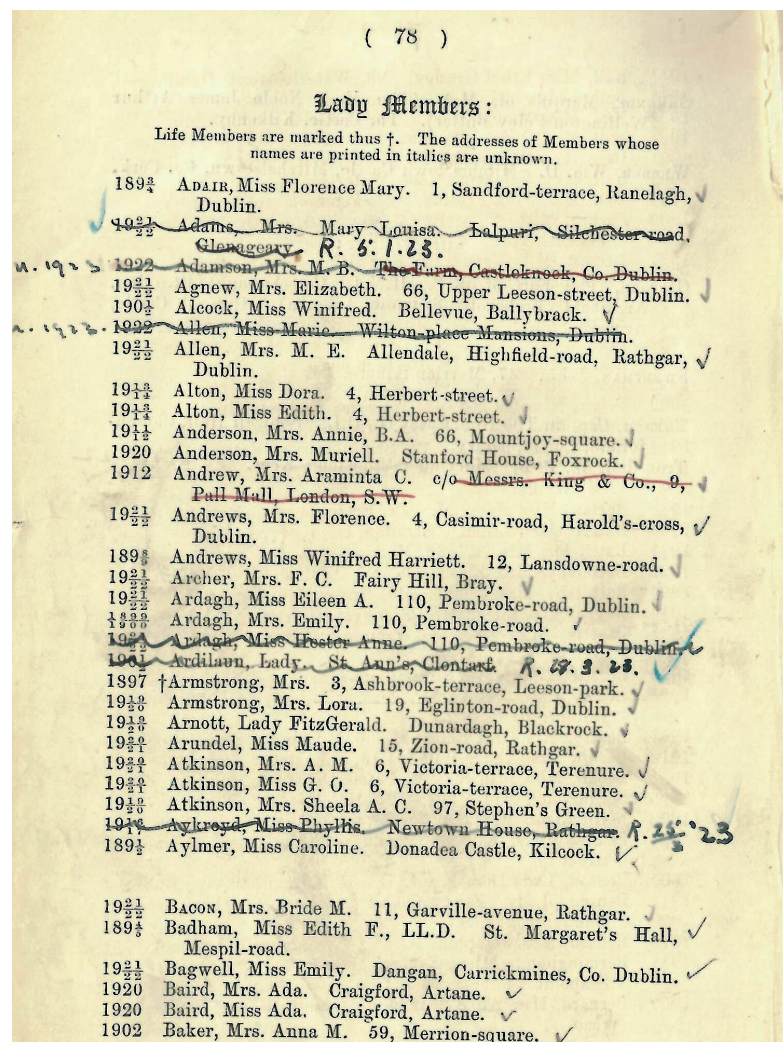 ( 78 )
Lady Members:
Life Members are marked thus †. The addresses of Members whose
names are printed in italics are unknown.
189¾ ADAIR, Miss Florence Mary. 1, Sandford-terrace, Ranelagh, ✓
Dublin.
19 21/22 Adams, Mrs. Mary Louisa. Lalpuri, Silchester-road,
Glenageary. R. 5.1.23.
1923 1922 Adamson, Mrs. M. B. The Farm, Castleknock, Co. Dublin.
19 21/22 Agnew, Mrs. Elizabeth. 66, Upper Leeson-street, Dublin. ✓
190½ Alcock, Miss Winifred. Bellevue, Ballybrack. ✓
1923. 1922 Allen, Miss Marie. Wilton-place Mansions, Dublin.
19 21/22 Allen, Mrs. M. E. Allendale, Highfield-road, Rathgar, ✓
Dublin.
19 13/14 Alton, Miss Dora. 4, Herbert-street. ✓
19 13/14 Alton, Miss Edith. 4, Herbert-street. ✓
19 11/12 Anderson, Mrs. Annie, B.A. 66, Mountjoy-square. ✓
1920 Anderson, Mrs. Muriell. Stanford House, Foxrock. ✓
1912 Andrew, Mrs. Araminta C. c/o Messrs. King & Co., 9, ✓
Pall Mall, London, S.W.
19 21/22 Andrews, Mrs. Florence. 4, Casimir-road, Harold's-cross, ✓
Dublin.
189 8/9 Andrews, Miss Winifred Harriett. 12, Lansdowne-road. ✓
19 21/22 Archer, Mrs. F. C. Fairy Hill, Bray. ✓
19 21/22 Ardagh, Miss Eileen A. 110, Pembroke-road, Dublin. ✓
1899/1900 Ardagh, Mrs. Emily. 110, Pembroke-road. ✓
Ardagh, Miss Hester Anne. 110, Pembroke-road, Dublin. ✓
Ardilaun, Lady. St. Ann's, Clontarf. R. 3.23.
1897 †Armstrong, Mrs. 3, Ashbrook-terrace, Leeson-park. ✓
19 19/20 Armstrong, Mrs. Lora. 19, Eglinton-road, Dublin. ✓
19 19/20 Arnott, Lady FitzGerald. Dunardagh, Blackrock. ✓
19 20/21 Arundel, Miss Maude. 15, Zion-road, Rathgar. ✓
19 20/21 Atkinson, Mrs. A. M. 6, Victoria-terrace, Terenure. ✓
19 20/21 Atkinson, Miss G. O. 6, Victoria-terrace, Terenure. ✓
19 19/20 Atkinson, Mrs. Sheela A. C. 97, Stephen's Green. ✓
Aykroyd, Miss Phyllis. Newtown House, Rathgar. R. '23
189½ Aylmer, Miss Caroline. Donadea Castle, Kilcock. ✓
19 21/22 BACON, Mrs. Bride M. 11, Garville-avenue, Rathgar. ✓
189⅘ Badham, Miss Edith F., LL.D. St. Margaret's Hall, ✓
Mespil-road.
19 21/22 Bagwell, Miss Emily. Dangan, Carrickmines, Co. Dublin. ✓
1920 Baird, Mrs. Ada. Craigford, Artane. ✓
1920 Baird, Miss Ada. Craigford, Artane. ✓
1902 Baker, Mrs. Anna M. 59, Merrion-square. ✓